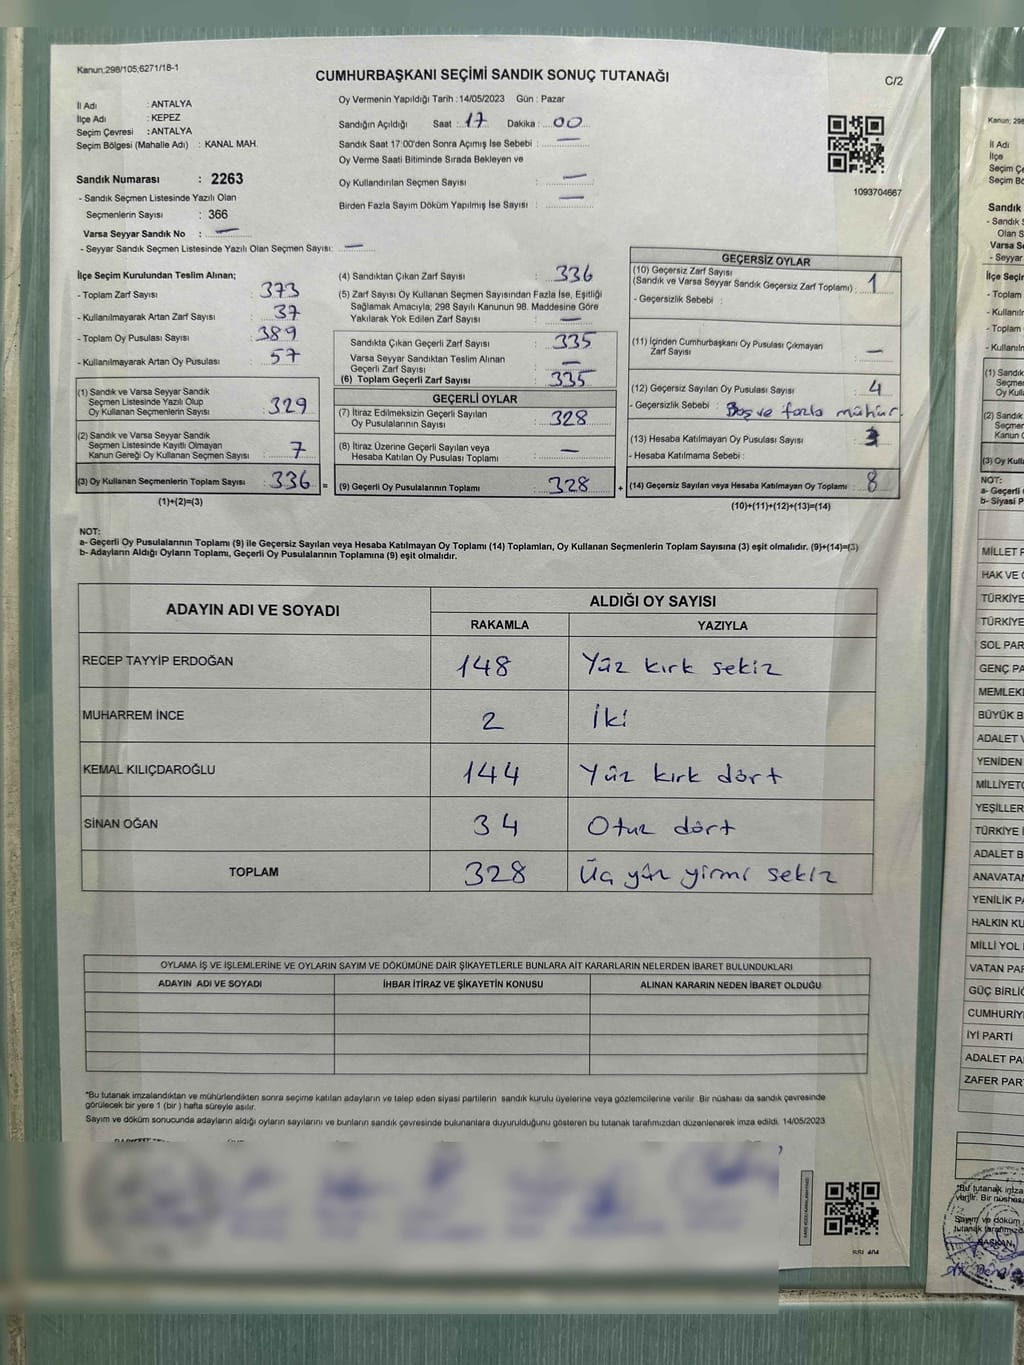 Kanun;298/105,6271/18-1
CUMHURBAŞKANI SEÇİMİ SANDIK SONUÇ TUTANAĞI
C/2
İl Adı : ANTALYA
İlçe Adı : KEPEZ
Seçim Çevresi : ANTALYA
Seçim Bölgesi (Mahalle Adı) : KANAL MAH.
Sandık Numarası : 2263
- Sandık Seçmen Listesinde Yazılı Olan
Seçmenlerin Sayısı : 366
Varsa Seyyar Sandık No : —
- Seyyar Sandık Seçmen Listesinde Yazılı Olan Seçmen Sayısı: —
Oy Vermenin Yapıldığı Tarih : 14/05/2023 Gün : Pazar
Sandığın Açıldığı Saat : 17 Dakika : 00
Sandık Saat 17:00'den Sonra Açımış İse Sebebi : —
Oy Verme Saati Bitiminde Sırada Bekleyen ve
Oy Kullandırılan Seçmen Sayısı : —
Birden Fazla Sayım Döküm Yapılmış İse Sayısı : —
1093704667
İlçe Seçim Kurulundan Teslim Alınan;
- Toplam Zarf Sayısı : 373
- Kullanılmayarak Artan Zarf Sayısı : 37
- Toplam Oy Pusulası Sayısı : 389
- Kullanılmayarak Artan Oy Pusulası : 57
(1) Sandık ve Varsa Seyyar Sandık
Seçmen Listesinde Yazılı Olup
Oy Kullanan Seçmenlerin Sayısı : 329
(2) Sandık ve Varsa Seyyar Sandık
Seçmen Listesinde Kayıtlı Olmayan
Kanun Gereği Oy Kullanan Seçmen Sayısı : 7
(3) Oy Kullanan Seçmenlerin Toplam Sayısı : 336 =
(1)+(2)=(3)
(4) Sandıktan Çıkan Zarf Sayısı : 336
(5) Zarf Sayısı Oy Kullanan Seçmen Sayısından Fazla İse, Eşitliği
Sağlamak Amacıyla, 298 Sayılı Kanunun 98. Maddesine Göre
Yakılarak Yok Edilen Zarf Sayısı : —
Sandıkta Çıkan Geçerli Zarf Sayısı : 335
Varsa Seyyar Sandıktan Teslim Alınan
Geçerli Zarf Sayısı : —
(6) Toplam Geçerli Zarf Sayısı : 335
GEÇERLİ OYLAR
(7) İtiraz Edilmeksizin Geçerli Sayılan
Oy Pusulalarının Sayısı : 328
(8) İtiraz Üzerine Geçerli Sayılan veya
Hesaba Katılan Oy Pusulası Toplamı : —
(9) Geçerli Oy Pusulalarının Toplamı : 328 +
GEÇERSİZ OYLAR
(10) Geçersiz Zarf Sayısı
(Sandık ve Varsa Seyyar Sandık Geçersiz Zarf Toplamı) : 1
- Geçersizlik Sebebi :
(11) İçinden Cumhurbaşkanı Oy Pusulası Çıkmayan
Zarf Sayısı : —
(12) Geçersiz Sayılan Oy Pusulası Sayısı : 4
- Geçersizlik Sebebi : Boş ve fazla mühür.
(13) Hesaba Katılmayan Oy Pusulası Sayısı : 3
- Hesaba Katılmama Sebebi :
(14) Geçersiz Sayılan veya Hesaba Katılmayan Oy Toplamı : 8
(10)+(11)+(12)+(13)=(14)
NOT:
a- Geçerli Oy Pusulalarının Toplamı (9) ile Geçersiz Sayılan veya Hesaba Katılmayan Oy Toplamı (14) Toplamları, Oy Kullanan Seçmenlerin Toplam Sayısına (3) eşit olmalıdır. (9)+(14)=(3)
b- Adayların Aldığı Oyların Toplamı, Geçerli Oy Pusulalarının Toplamına (9) eşit olmalıdır.
ADAYIN ADI VE SOYADI
ALDIĞI OY SAYISI
RAKAMLA YAZIYLA
RECEP TAYYİP ERDOĞAN 148 Yüz kırk sekiz
MUHARREM İNCE 2 İki
KEMAL KILIÇDAROĞLU 144 Yüz kırk dört
SİNAN OĞAN 34 Otuz dört
TOPLAM 328 Üç yüz yirmi sekiz
OYLAMA İŞ VE İŞLEMLERİNE VE OYLARIN SAYIM VE DÖKÜMÜNE DAİR ŞİKAYETLERLE BUNLARA AİT KARARLARIN NELERDEN İBARET BULUNDUKLARI
ADAYIN ADI VE SOYADI İHBAR İTİRAZ VE ŞİKAYETİN KONUSU ALINAN KARARIN NEDEN İBARET OLDUĞU
*Bu tutanak imzalandıktan ve mühürlendikten sonra seçime katılan adayların ve talep eden siyasi partilerin sandık kurulu üyelerine veya gözlemcilerine verilir. Bir nüshası da sandık çevresinde
görülecek bir yere 1 (bir) hafta süreyle asılır.
Sayım ve döküm sonucunda adayların aldığı oyların sayılarını ve bunların sandık çevresinde bulunanlara duyurulduğunu gösteren bu tutanak tarafımızdan düzenlenerek imza edildi. 14/05/2023
Kanun; 298
İl Adı
İlçe
Seçim Çe
Seçim Bö
Sandık
- Sandık S
Olan S
Varsa Se
- Seyyar
İlçe Seçir
- Toplam
- Kullanılm
- Toplam
- Kullanılm
(1) Sandık
Seçme
Oy Kul
(2) Sandık
Seçme
Kanun G
(3) Oy Kulla
NOT:
a- Geçerli
b- Siyasi P
MİLLET P
HAK VE Ö
TÜRKİYE
TÜRKİYE
SOL PAR
GENÇ PA
MEMLEKE
BÜYÜK B
ADALET V
YENİDEN
MİLLİYETÇ
YEŞİLLER
TÜRKİYE İ
ADALET B
ANAVATAN
YENİLİK PA
HALKIN KU
MİLLİ YOL
VATAN PAR
GÜÇ BİRLİĞ
CUMHURİY
İYİ PARTİ
ADALET PA
ZAFER PART
*Bu tutanak imza
verilir. Bir nüshas
Sayım ve döküm
tutanak tarafımızd
BAŞKAN